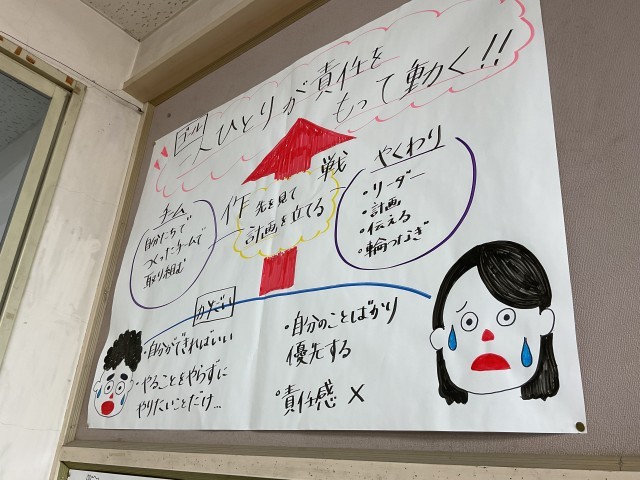 ゴール
一人ひとりが責任を
もって動く!!
チーム
自分たちで
つくったチームで
取り組む
作戦
先を見て
計画を立てる
やくわり
・リーダー
・計画
・伝える
・輪つなぎ
・自分ができればいい
・やることをやらずに
やりたいことだけ…
・自分のことばかり
優先する
・責任感 ×